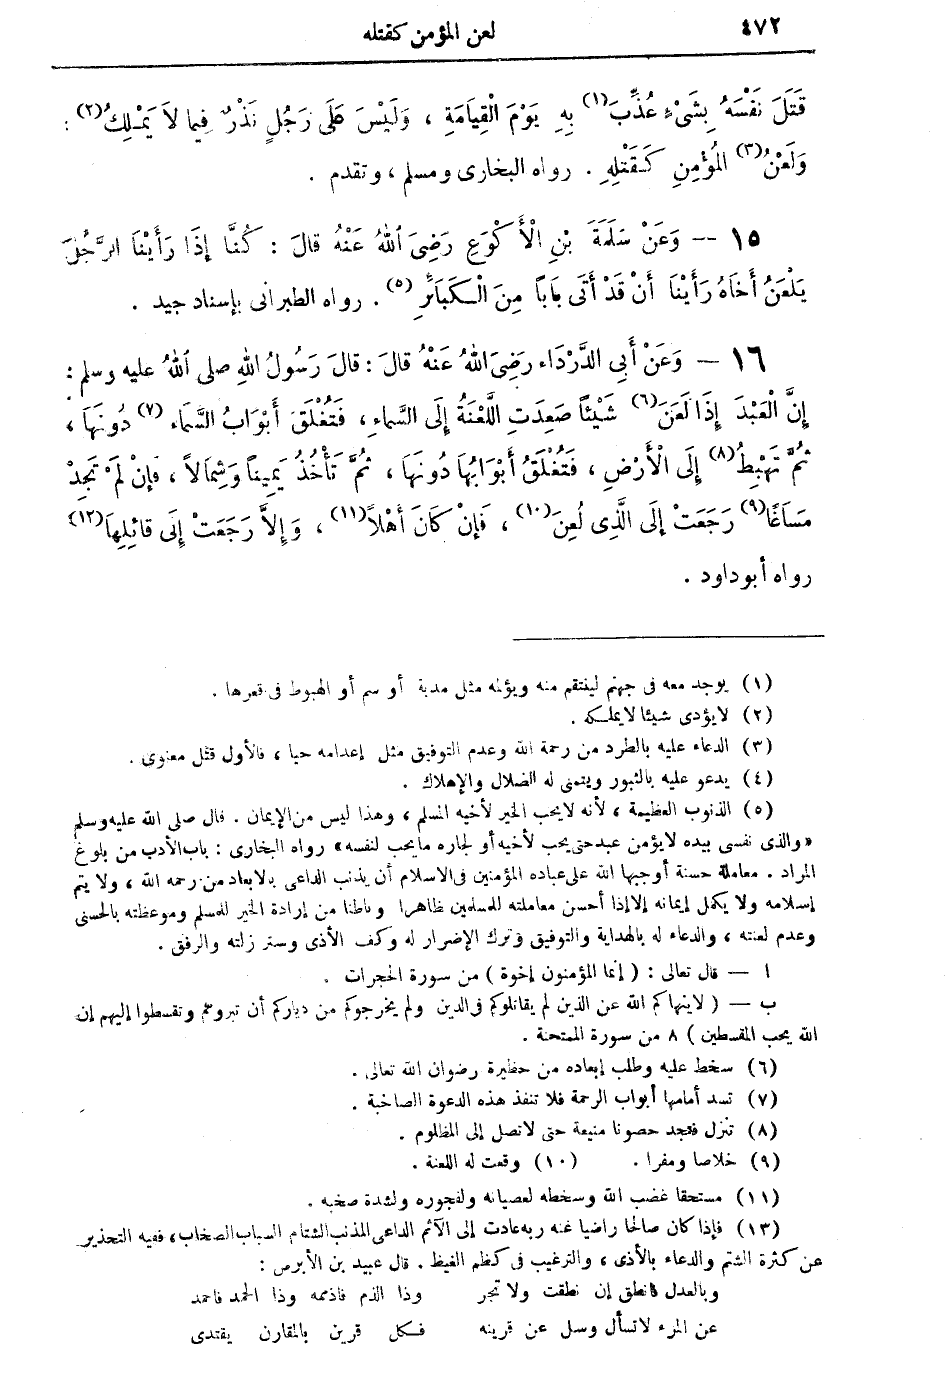 ٤٧٢
لعن المؤمن كقتله
قَتَلَ نَفْسَهُ بِشَىْءٍ عُذِّبَ (١) بِهِ يَوْمَ الْقِيَامَةِ ، وَلَيْسَ عَلَى رَجُلٍ نَذْرٌ فِيما لاَ يَمْلِكُ (٢) :
وَلَعْنُ (٣) المُؤْمِنِ كَقَتْلِهِ . رواه البخارى ومسلم ، وتقدم .
١٥ -- وَعَنْ سَلَمَةَ بْنِ الْأَكْوَعِ رَضِىَ اللهُ عَنْهُ قالَ : كُنَّا إِذَا رَأَيْنَا الرَّجُلَ
يَلْعَنُ أَخَاهُ رَأَيْنَا أَنْ قَدْ أَتَى بَاباً مِنَ الْكَبَائِرِ (٥) . رواه الطبرانى بإسناد جيد .
١٦ — وَعَنْ أَبِي الدَّرْدَاء رَضِىَ اللهُ عَنْهُ قالَ : قالَ رَسُولُ اللهِ صلى اللهُ عليه وسلم :
إِنَّ الْعَبْدَ إِذَا لَعَنَ (٦) شَيْئاً صَعِدَتِ اللَّعْنَةُ إِلَى السَّماءِ ، فَتُغْلَقَ أَبْوَابُ السَّمَاء (٧) دُونَهَا ،
ثُمَّ تَهْبِطُ (٨) إِلَى الْأَرْضِ ، فَتُغْلَقُ أَبْوَابُهَا دُونَهَا ، ثُمَّ تَأْخُذُ يَمِيناً وَشِمَالاً ، فَإِنْ لَمْ تَجِدْ
مَسَاغًا (٩) رَجَعَتْ إِلَى الَّذِى لُعِنَ (١٠) ، فَإِنْ كَانَ أَهْلاً (١١) ، وَإِلاَّ رَجَعَتْ إِلَى قائِلِهَا (١٢)
رواه أبو داود .
(١) يوجد معه فى جهنم لينتقم منه ويؤلمه مثل مدية أو سم أو الهبوط فى قعرها .
(٢) لايؤدى شيئا لايملكه .
(٣) الدعاء عليه بالطرد من رحمة الله وعدم التوفيق مثل إعدامه حيا ، فالأول قتل معنوى .
(٤) يدعو عليه بالثبور ويتمنى له الضلال والإهلاك .
(٥) الذنوب العظيمة ، لأنه لايحب الخير لأخيه المسلم ، وهذا ليس من الإيمان . قال صلى الله عليه وسلم
«والذى نفسى بيده لايؤمن عبد حتى يحب لأخيه أو لجاره ما يحب لنفسه» رواه البخارى : باب الأدب من بلوغ
المراد . معاملة حسنة أوجبها الله على عباده المؤمنين فى الاسلام أن يذنب الداعى بالابعاد من رحمه الله ، ولا يتم
إسلامه ولا يكمل إيمانه إلا إذا أحسن معاملته للمسلمين ظاهرا وباطنا من إرادة الخير للمسلم وموعظته بالحسنى
وعدم لعنته ، والدعاء له بالهداية والتوفيق وترك الإضرار له وكف الأذى وستر زلته والرفق .
ا — قال تعالى : ( إنما المؤمنون إخوة ) من سورة الحجرات .
ب — ( لاينهاكم الله عن الذين لم يقاتلوكم فى الدين ولم يخرجوكم من دياركم أن تبروهم وتقسطوا إليهم إن
الله يحب المقسطين ) ٨ من سورة الممتحنة .
(٦) سخط عليه وطلب إبعاده من حظيرة رضوان الله تعالى .
(٧) تسد أمامها أبواب الرحمة فلا تنفذ هذه الدعوة الصاخبة .
(٨) تنزل فتجد حصونا منيعة حتى لاتصل إلى المظلوم .
(٩) خلاصا ومفرا . (١٠) وقعت له اللعنة .
(١١) مستحقا غضب الله وسخطه لعصيانه ولفجوره ولشدة صخبه .
(١٣) فإذا كان صالحا راضيا عنه ربه عادت إلى الآثم الداعى المذنب الشتام السباب الصخاب ، ففيه التحذير
عن كثرة الشتم والدعاء بالأذى ، والترغيب فى كظم الغيظ . قال عبيد بن الأبرص :
وبالعدل فانطق إن نطقت ولا تجر وذا الذم فاذممه وذا الحمد فاحمد
عن المرء لاتسأل وسل عن قرينه فكل قرين بالمقارن يقتدى